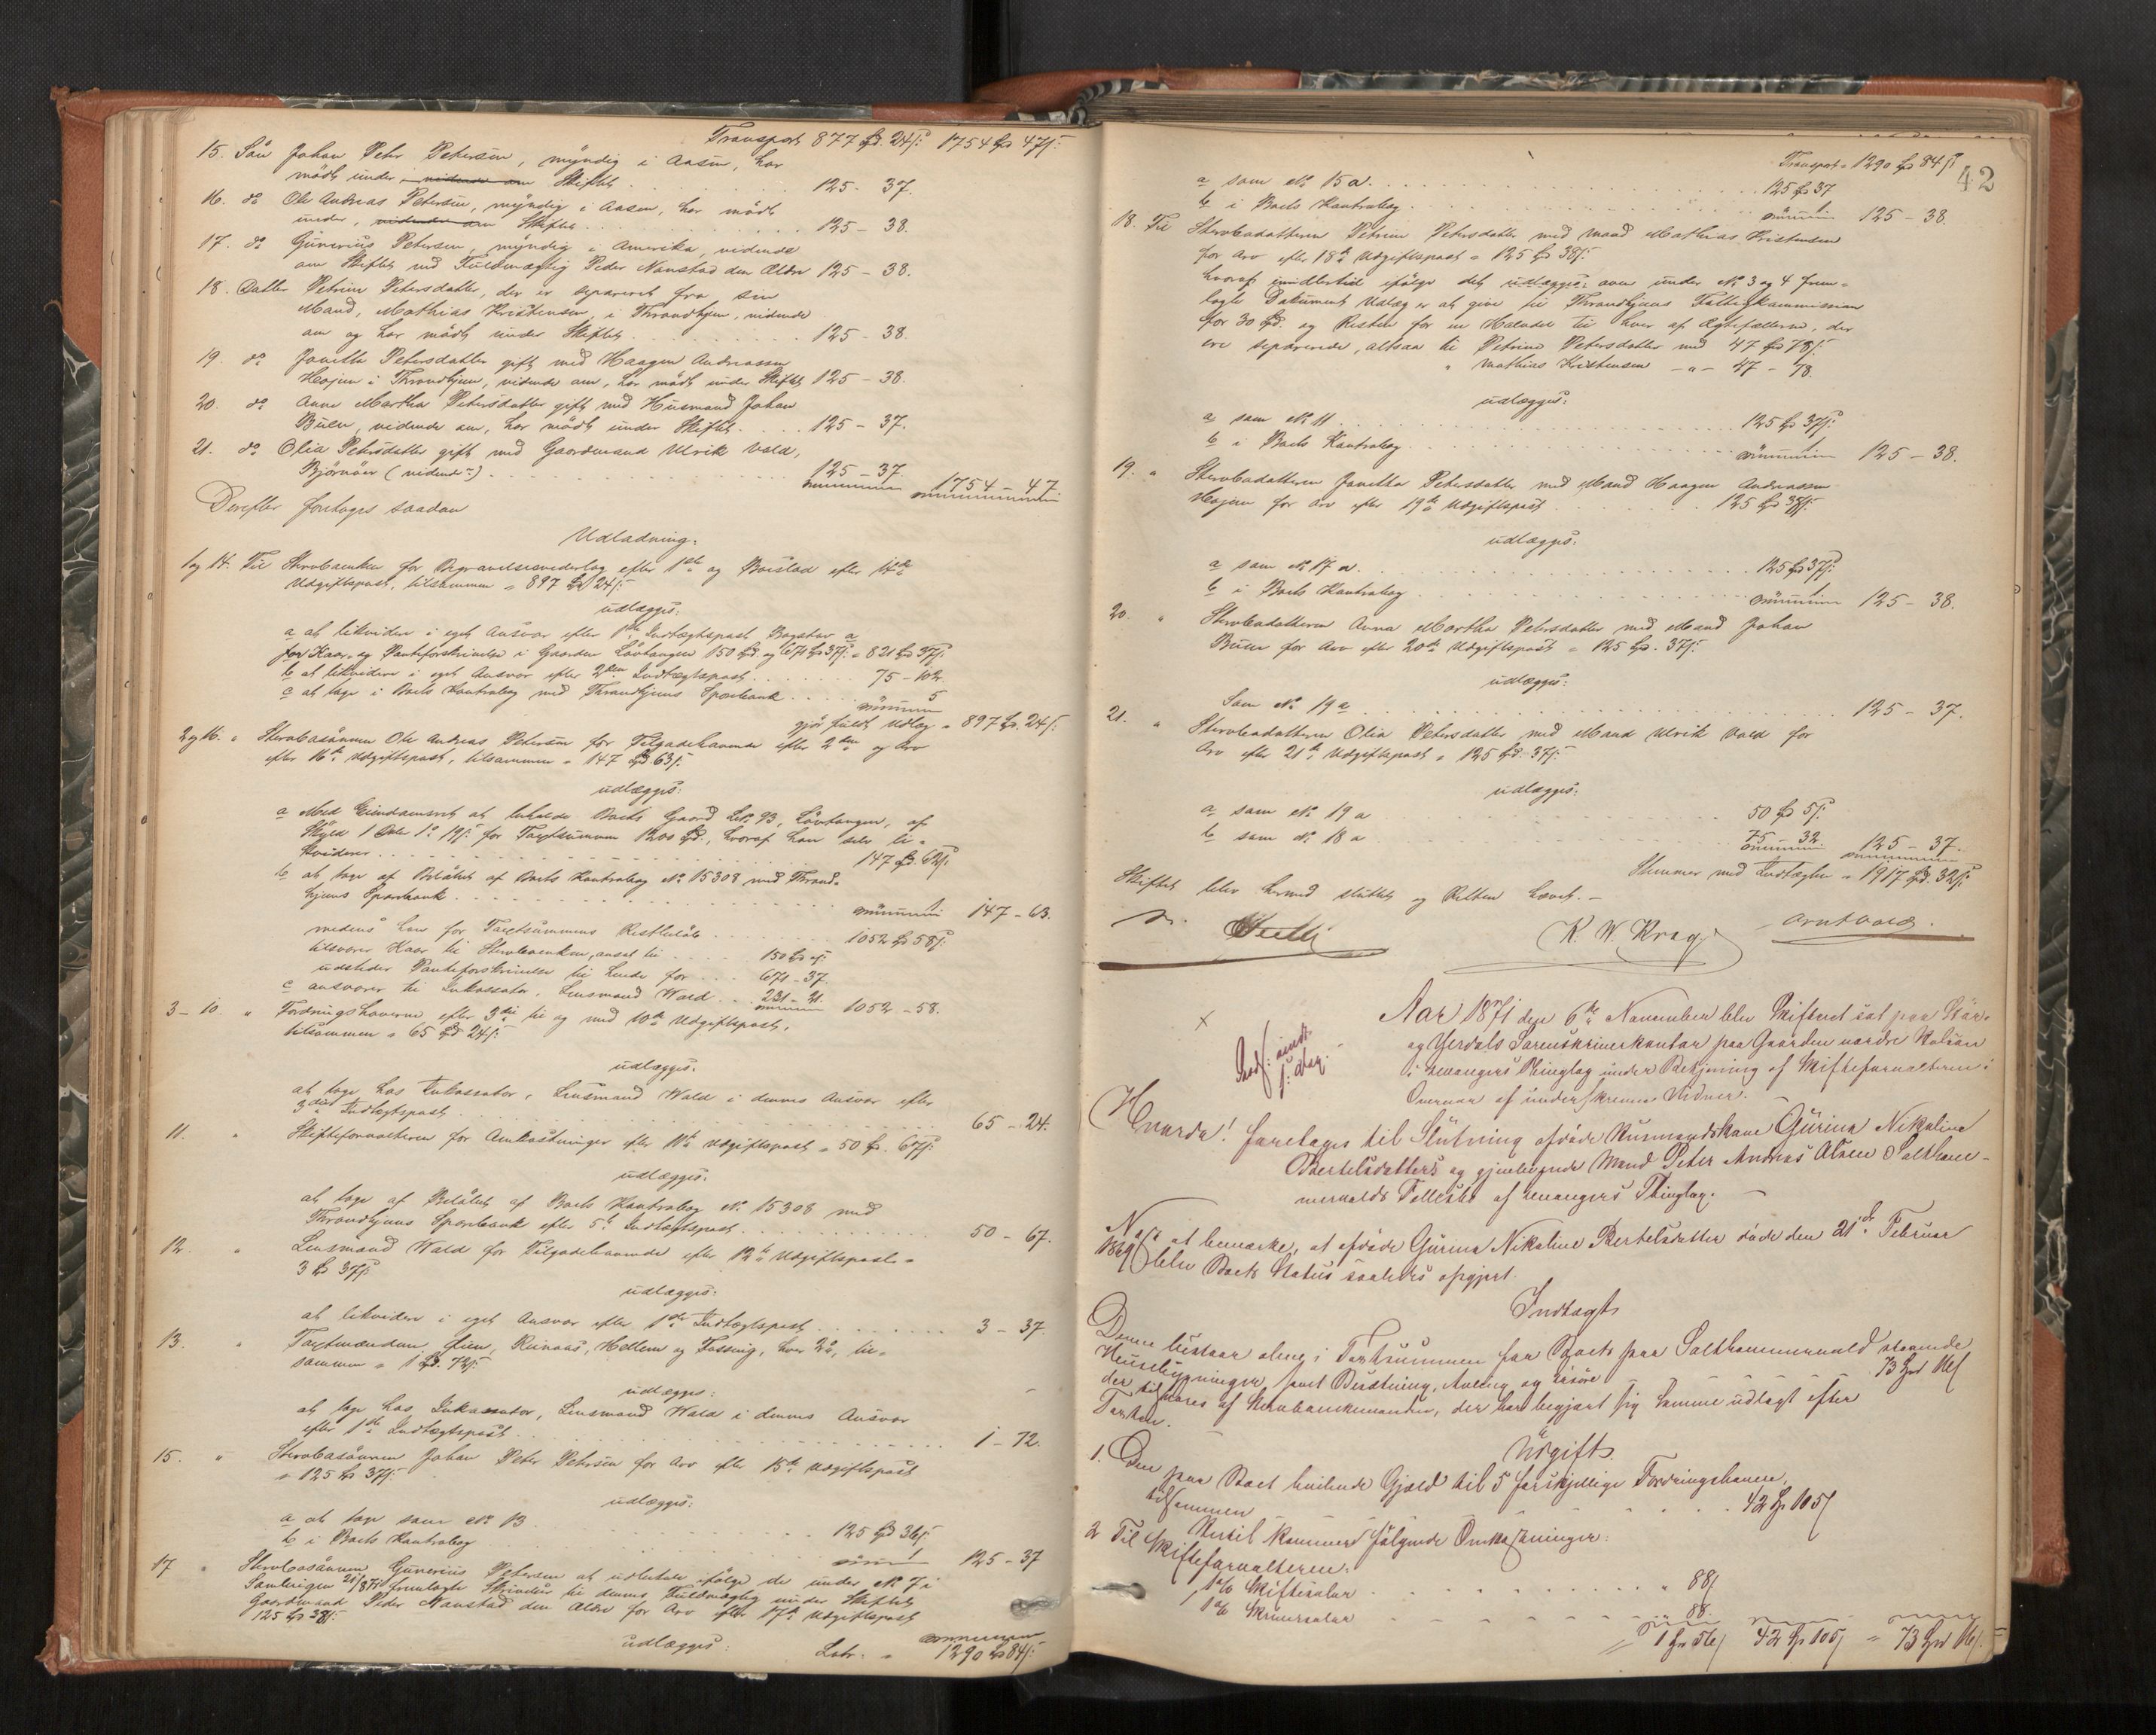 Transport 877 Spd. 24 s: 1754 Spd 47 s:
15. Søn Johan Peter Petersen, myndig i Aasen, har
mødt under vidende om Skiftet 125 - 37.
16. do Ole Andreas Petersen, myndig i Aasen, har mødt
under, vidende om Skiftet 125 - 38.
17. do Gunerius Petersen, myndig i Amerika, vidende
om Skiftet ved Fuldmægtig Peder Nonstad den Ældre 125 - 38.
18. Datter Petrine Petersdatter, der er separeret fra sin
Mand, Mathias Kristensen, i Throndhjem, vidende
om og har mødt under Skiftet 125 - 38.
19. do Janetta Petersdatter gift med Haagen Andreassen
Hojem i Throndhjem, vidende om, har mødt under Skiftet 125 - 38.
20. do Anne Martha Petersdatter gift med Husmand Johan
Buen, vidende om, har mødt under Skiftet 125 - 37.
21. do Olia Petersdatter gift med Gaardmand Ulrik Vold,
Bjørnør (vidende) 125 - 37 1754 - 47
Derefter foretages saadan
Udlodning.
1 og 14. Til Stervboenken for Begravelsesvederlag efter 1ste og Boeslod efter 14de
Udgiftspost, tilsammen = 897 Spd 24 s:
udlægges:
a at likvidere i eget Ansvar efter 1ste Indtægtspost Bogstav a
for Kaar- og Panteforskrivelse i Gaarden Løvtangen 150 Spd og 671 Spd 37 s: = 821 Spd 37 s:
b at likvidere i eget Ansvar efter 2den Indtægtspost 75 - 102.
c at tage i Boets Kontrabog med Throndhjems Sparebank 5
gjør fuldt Udlæg = 897 Spd. 24 s:
2 og 16. " Stervbosønnen Ole Andreas Petersen for Tilgodehavende efter 2den og Arv
efter 16de Udgiftspost, tilsammen = 147 Spd. 63 s:
udlægges:
a Med Eiendomsret at beholde Boets Gaard LNo 93, Løvtangen, af
Skyld 1 Daler 1 19 s: for Taxtsummen 1200 Spd., hvoraf han selv li-
kviderer 147 Spd. 62 s:
b at tage af Beløbet af Boets Kontrabog No 15308 med Thrond-
hjems Sparebank 1 147 - 63.
medens han for Taxtsummens Restbeløb 1052 Spd 58 s:
tilsvarer Kaar til Stervboenken, ansat til 150 Spd
udsteder Panteforskrivelse til hende for 671 - 37.
c ansvarer til Inkassator, Lensmand Wold 231 - 21. 1052 - 58.
3 - 10. " Fordringshaverne efter 3die til og med 10de Udgiftspost,
tilsammen = 65 Spd 24 s:
udlægges:
at tage hos Inkassator, Lensmand Wold i dennes Ansvar efter
3die Indtægtspost 65 - 24.
11. " Skifteforvalteren for Omkostninger efter 11te Udgiftspost = 50 Spd. 67 s:
udlægges:
at tage af Beløbet af Boets Kontrabog No 15308 med
Throndhjems Sparebank efter 5te Indtægtspost 50 - 67.
12. " Lensmand Wold for Tilgodehavende efter 12te Udgiftspost =
3 Spd 37 s:
udlægges:
at likvidere i eget Ansvar efter 1ste Indtægtspost 3 - 37.
13. " Taxtmændene Hellem og Fossing, hver til-
sammen = 1 Spd. 72 s:
udlægges:
at tage hos Inkassator, Lensmand Wold i dennes Ansvar
efter 1ste Indtægtspost 1 - 72.
15. " Stervbosønnen Johan Peter Petersen for Arv efter 15de Udgiftspost
= 125 Spd 37 s:
udlægges:
a at tage som No 13 125 Spd 36 s:
b i Boets Kontrabog 1 125 - 37
17 " Stervbosønnen Gunerius Petersen at udbetale ifølge de under No 7 i
Samlingen 21/8 71 fremlagte Skrivelser til dennes Fuldmægtig under Skiftet
Gaardmand Peder Nonstad den Ældre for Arv efter 17de Udgiftspost
125 Spd 38 s:
udlægges:
Latr. = 1290 Spd 84 s:
42
Transport = 1290 Spd 84 s:
a som No 15 a 125 Spd 37
b i Boets Kontrabog 1 125 - 38.
18. Til Stervbodatteren Petrine Petersdatter med Mand Mathias Kristensen
for Arv efter 18de Udgiftspost = 125 Spd 38 s:
hvoraf imidlertid ifølge det udlægges oven under No 3 og 4 frem-
lagte Dokument Udlæg er at give til Throndhjems Fattigkommission
for 30 Spd. og Resten for en Halvdel til hver af Ægtefællerne, der
ere separerede, altsaa til Petrine Petersdatter med 47 Spd 78 s:
" Mathias Kristensen - " - 47 - 78.
udlægges:
a som No 11 125 Spd 37 s:
b i Boets Kontrabog 1 125 - 38.
19. " Stervbodatteren Janetta Petersdatter med Mand Haagen Andreassen
Hojem for Arv efter 19de Udgiftspost 125 Spd 38 s:
udlægges:
a som No 17 a 125 Spd 37 s:
b i Boets Kontrabog 1 125 - 38.
20. " Stervbodatteren Anna Martha Petersdatter med Mand Johan
Buen for Arv efter 20de Udgiftspost = 125 Spd. 37 s:
udlægges:
Som No 19 a 125 - 37.
21. " Stervbodatteren Olia Petersdatter med Mand Ulrik Vold for
Arv efter 21de Udgiftspost = 125 Spd. 37 s:
udlægges:
a som No 19 a 50 Spd 5 s:
b som No 18 a 75 - 32 125 - 37.
Stemmer med Indtægten = 1917 Spd. 32 s:
Skiftet blev hermed sluttet og Retten hævet. -
K. W. Krag Arnt Vold.
Aar 1871 den 6te November blev Skifteret sat paa Stør-
og Værdals Sorenskriverkontor paa Gaarden nordre Holsan
i Levangers Thinglag under Betjening af Skifteforvalteren i
Overvær af underskrevne Vidner.
Hvorda! foretages til Slutning afdøde Husmandskone Gurina Nikoline
Bertelsdatters og gjenlevende Mand Peter Andreas Olsen Saltham-
mervalds Fællesbo af Levangers Thinglag. -
Næst at bemærke, at afdøde Gurina Nikoline Bertelsdatter døde den 21de Februar
1869, blev Boets Status saaledes opgjort.
Indtægt
Denne bestaar alene i Taxtsummen for Boets paa Salthammervald staaende
Husebygninger samt Besætning, Avling og Løsøre 73 Spd 16 s
der tilhøres af Stervboenkemanden, der har begjært sig samme udlagt efter
Taxten.
Udgift.
1. Den paa Boet hvilende Gjæld til 5 forskjellige Fordringshavere,
tilsammen 42 Spd 105 s
Hertil kommer følgende Omkostninger:
2 Til Skifteforvalteren:
1 % Skiftesalær " 88 s
1 % Skriversalær 88.
= 1 Spd 56 s 42 Spd 105 s = 73 Spd 16 s